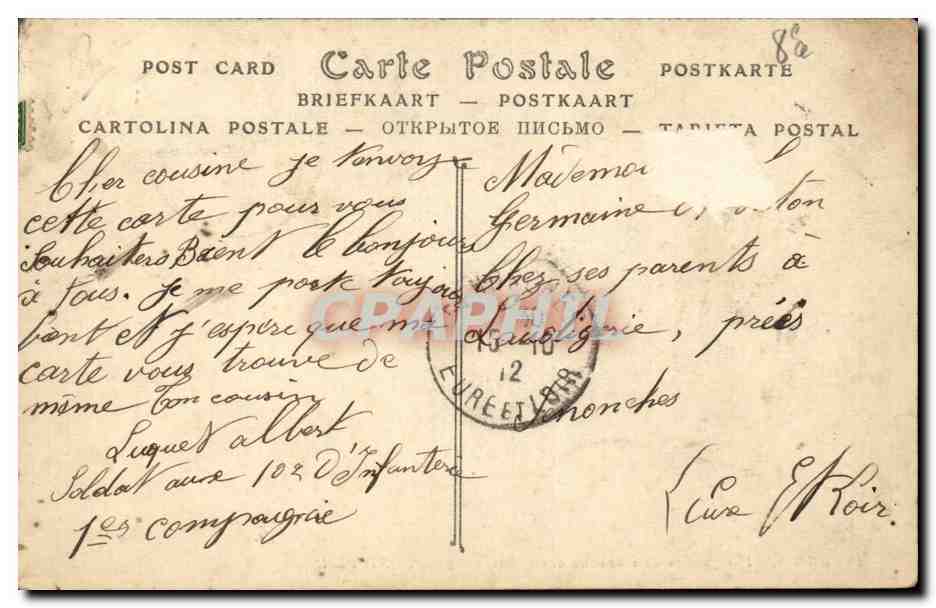 8
POST CARD Carte Postale POSTKARTE
BRIEFKAART — POSTKAART
CARTOLINA POSTALE — ОТКРЫТОЕ ПИСЬМО — TARJETA POSTAL
Cher cousine je t'envoys
cette carte pour vous
Souhaiters Bient le bonjour
à tous. je me porte toujour
bient et j'espère que ma
carte vous trouve de
même ton cousin
Luquet albert
Soldat aux 102 d'Infanteri
1er compaignie
Mademoi
Germaine
Chez ses parents à
, prées
Senonches
Eure Et Loir
15 - 10
12
EURE ET LOIR
CPAPHIL